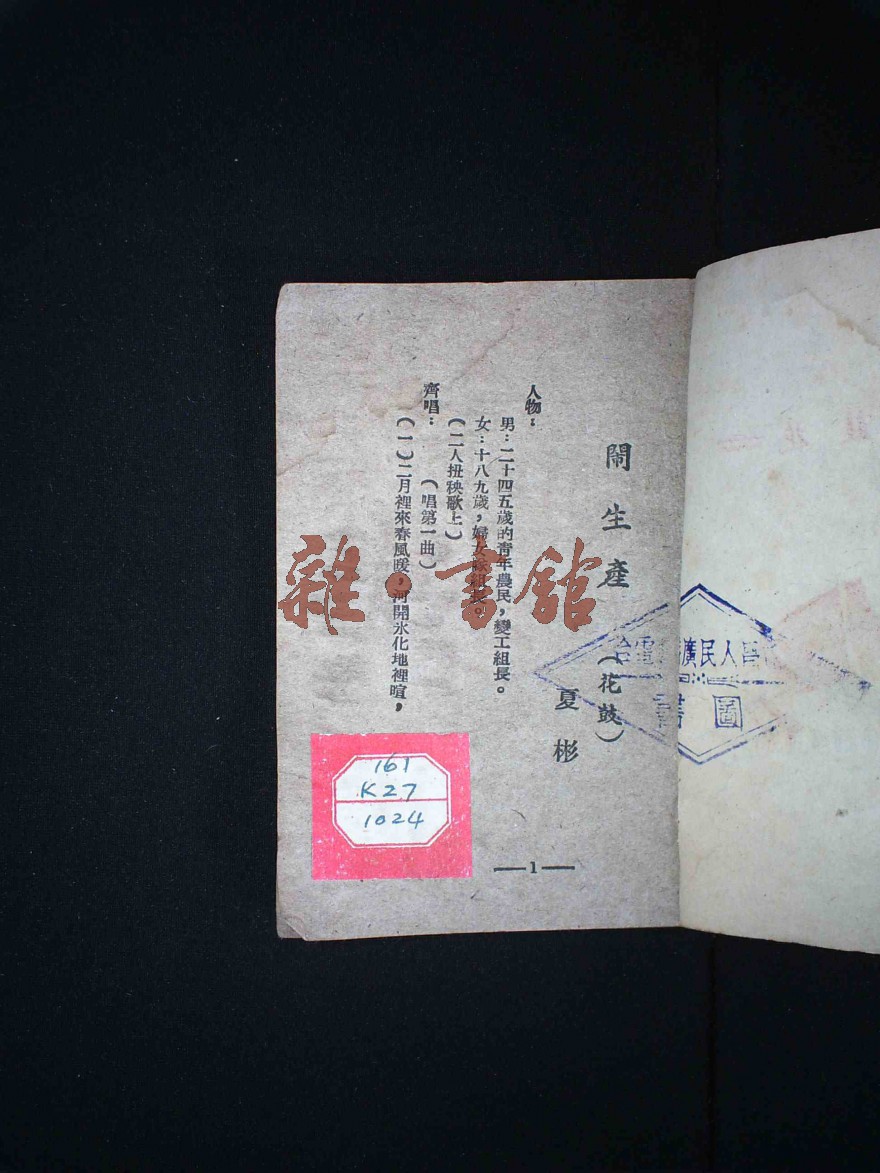 鬧生產（花鼓）
夏彬
人物：
男：二十四五歲的青年農民，變工組長。
女：十八九歲，婦女隊組長。
（二人扭秧歌上）
齊唱：（唱第一曲）
（一）二月裡來春風暖，河開氷化地裡喧，
—1—
161
K27
1024
雜·書館
人民廣
圖書